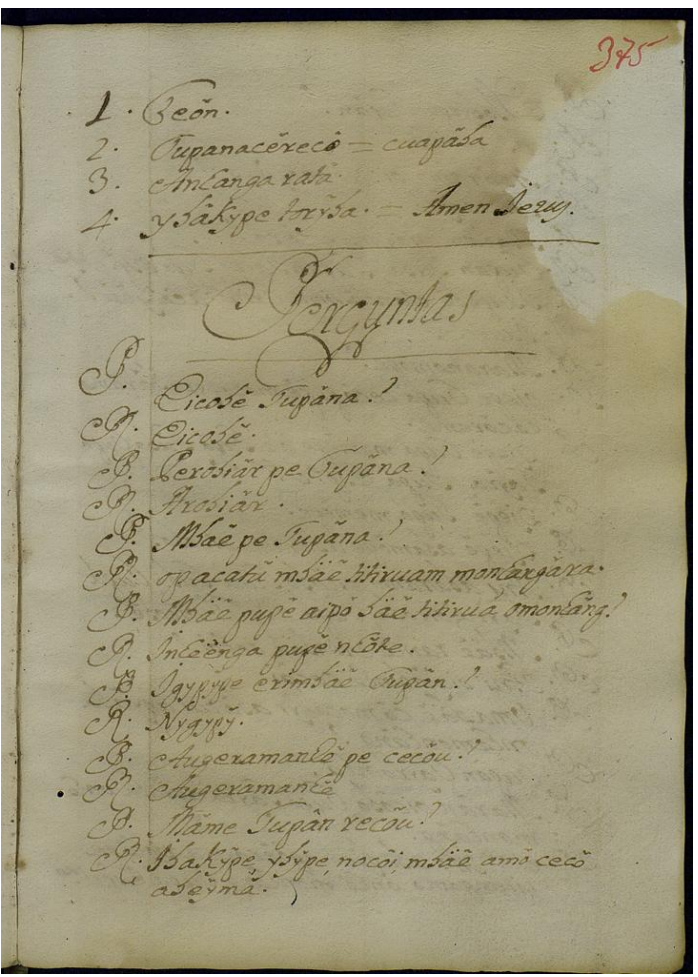 375
1. Teõn.
2. Tupanacẽrecõ = cuapãba
3. Anhanga ratã.
4. ybãkype torỹba. = Amen Jesus.
Perguntas
P. Eicobẽ Tupãna?
R. Eicobẽ.
P. Perobiãr pe Tupãna?
R. Arobiãr.
P. Mbaẽ pe Tupãna?
R. opacatũ mbãẽ titiruam monhãngãra.
P. Mbãẽ pupẽ aipõ bãẽ titirua omonhãng?
R. Inhẽẽnga pupẽ nhõte.
P. Igypỹpe erimbãẽ Tupãn?
R. Nygypỹ.
P. Augeramanhẽ pe cecõu?
R. Augeramanhẽ
P. Mãme Tupãn recõu?
R. Ibakỹpe, ybỹpe, nocõi, mbãẽ amõ cecõ
abeỹmã.